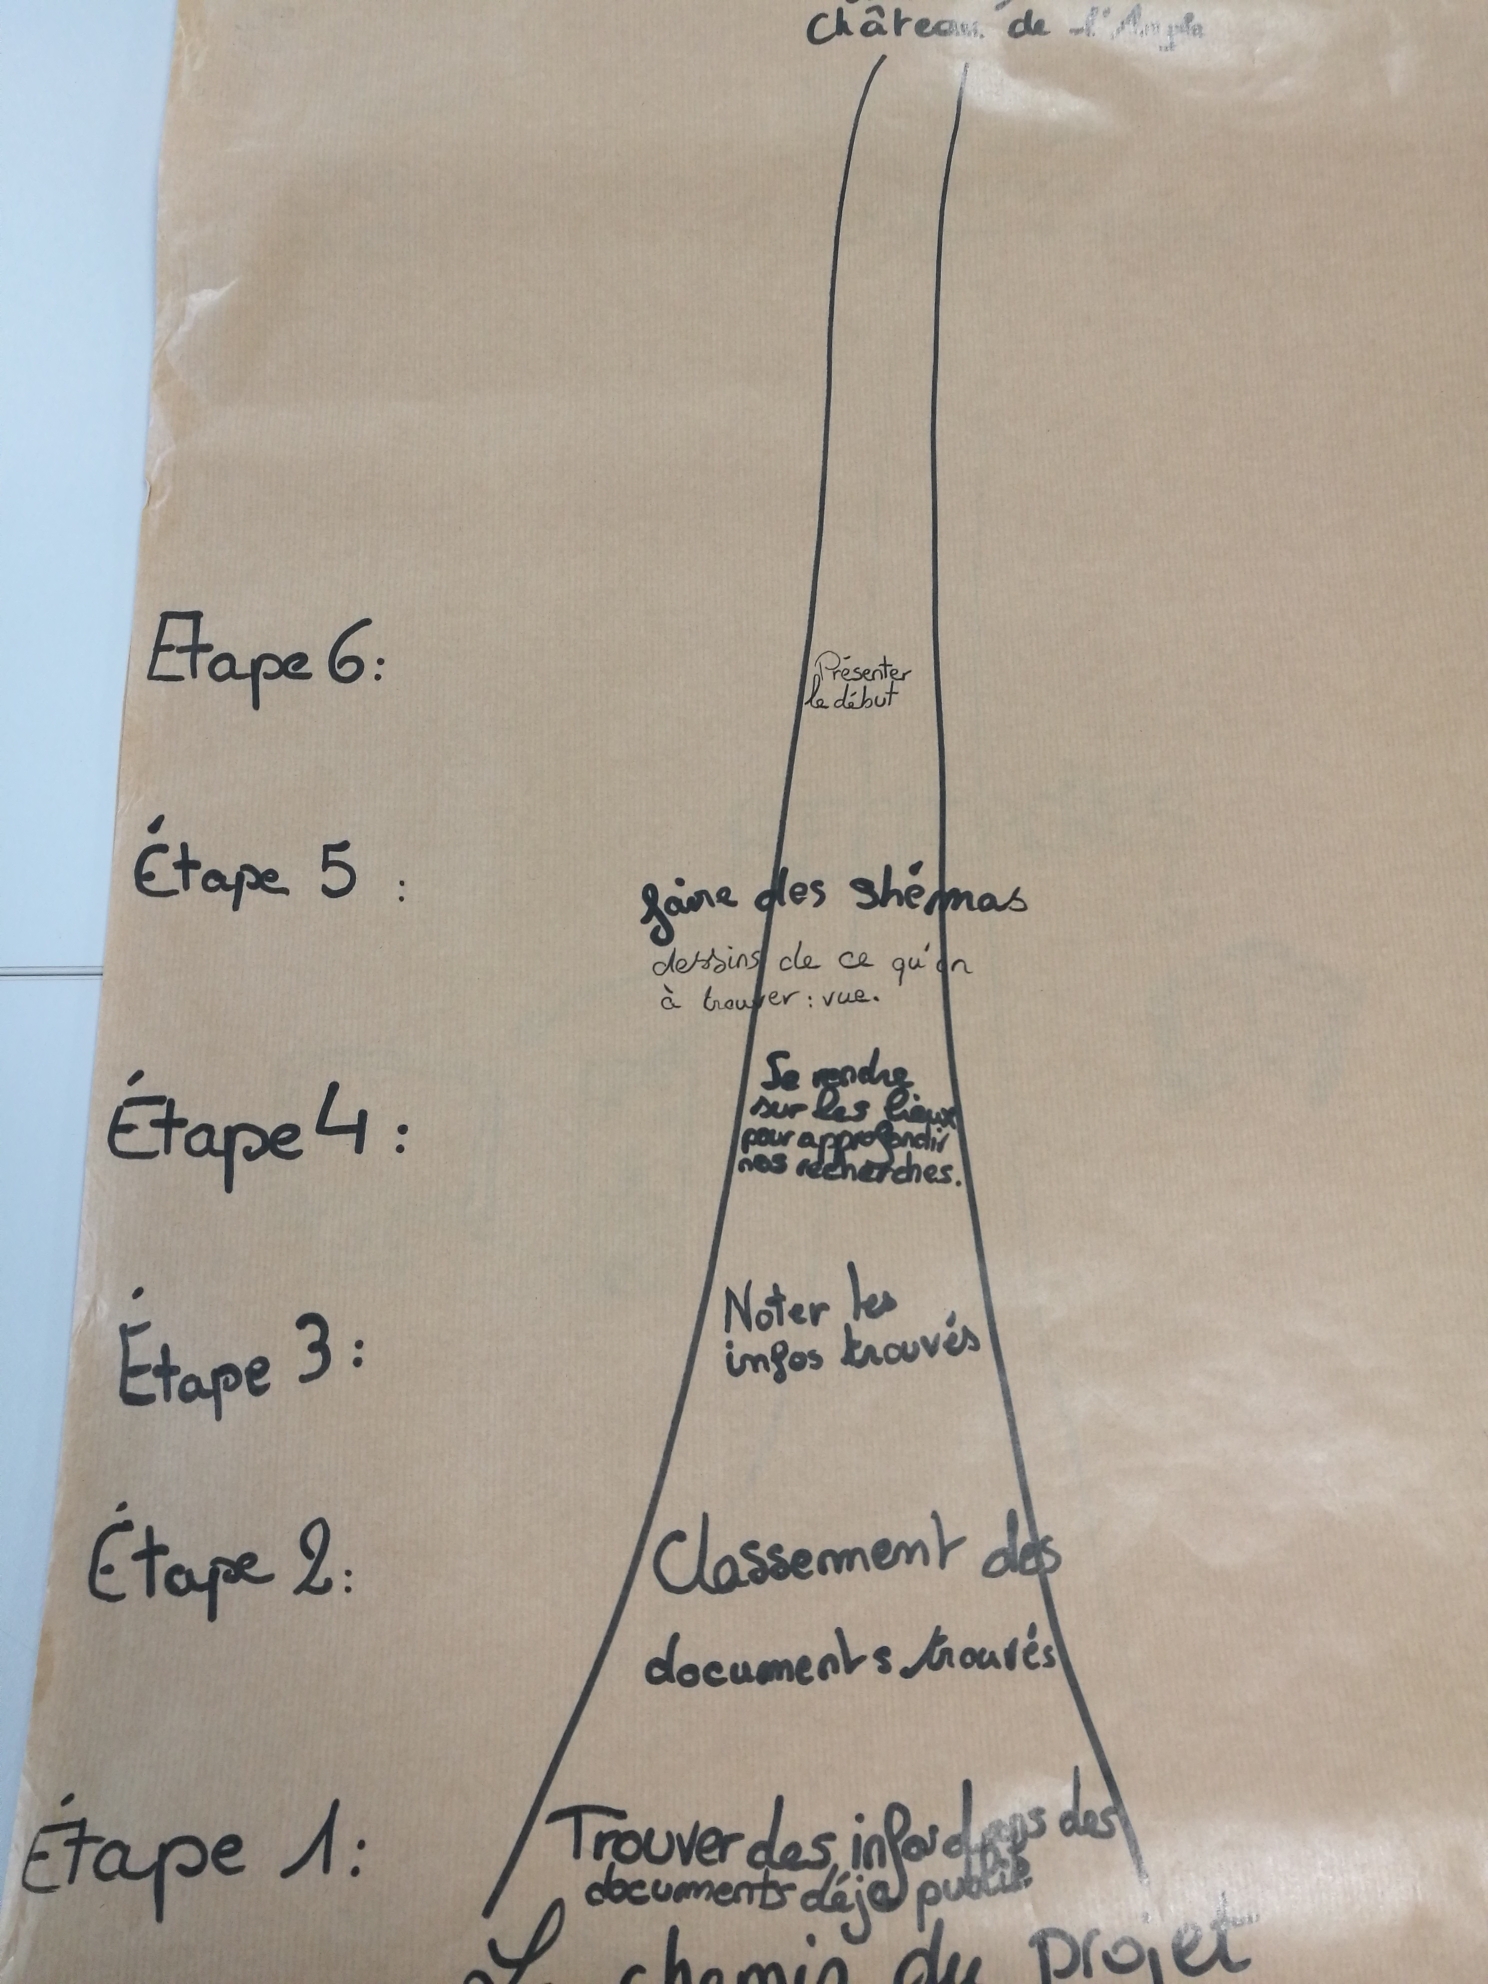 Château de l'Angle
Etape 6:
Présenter
le début
Étape 5 :
faire des shémas
dessins de ce qu'on
à trouver : vue.
Étape 4 :
Se rendre
sur les lieux
pour approfondir
nos recherches.
Étape 3 :
Noter les
infos trouvés
Étape 2 :
Classement des
documents trouvés
Étape 1 :
Trouver des infos dans des
documents déja publié
Le chemin du projet